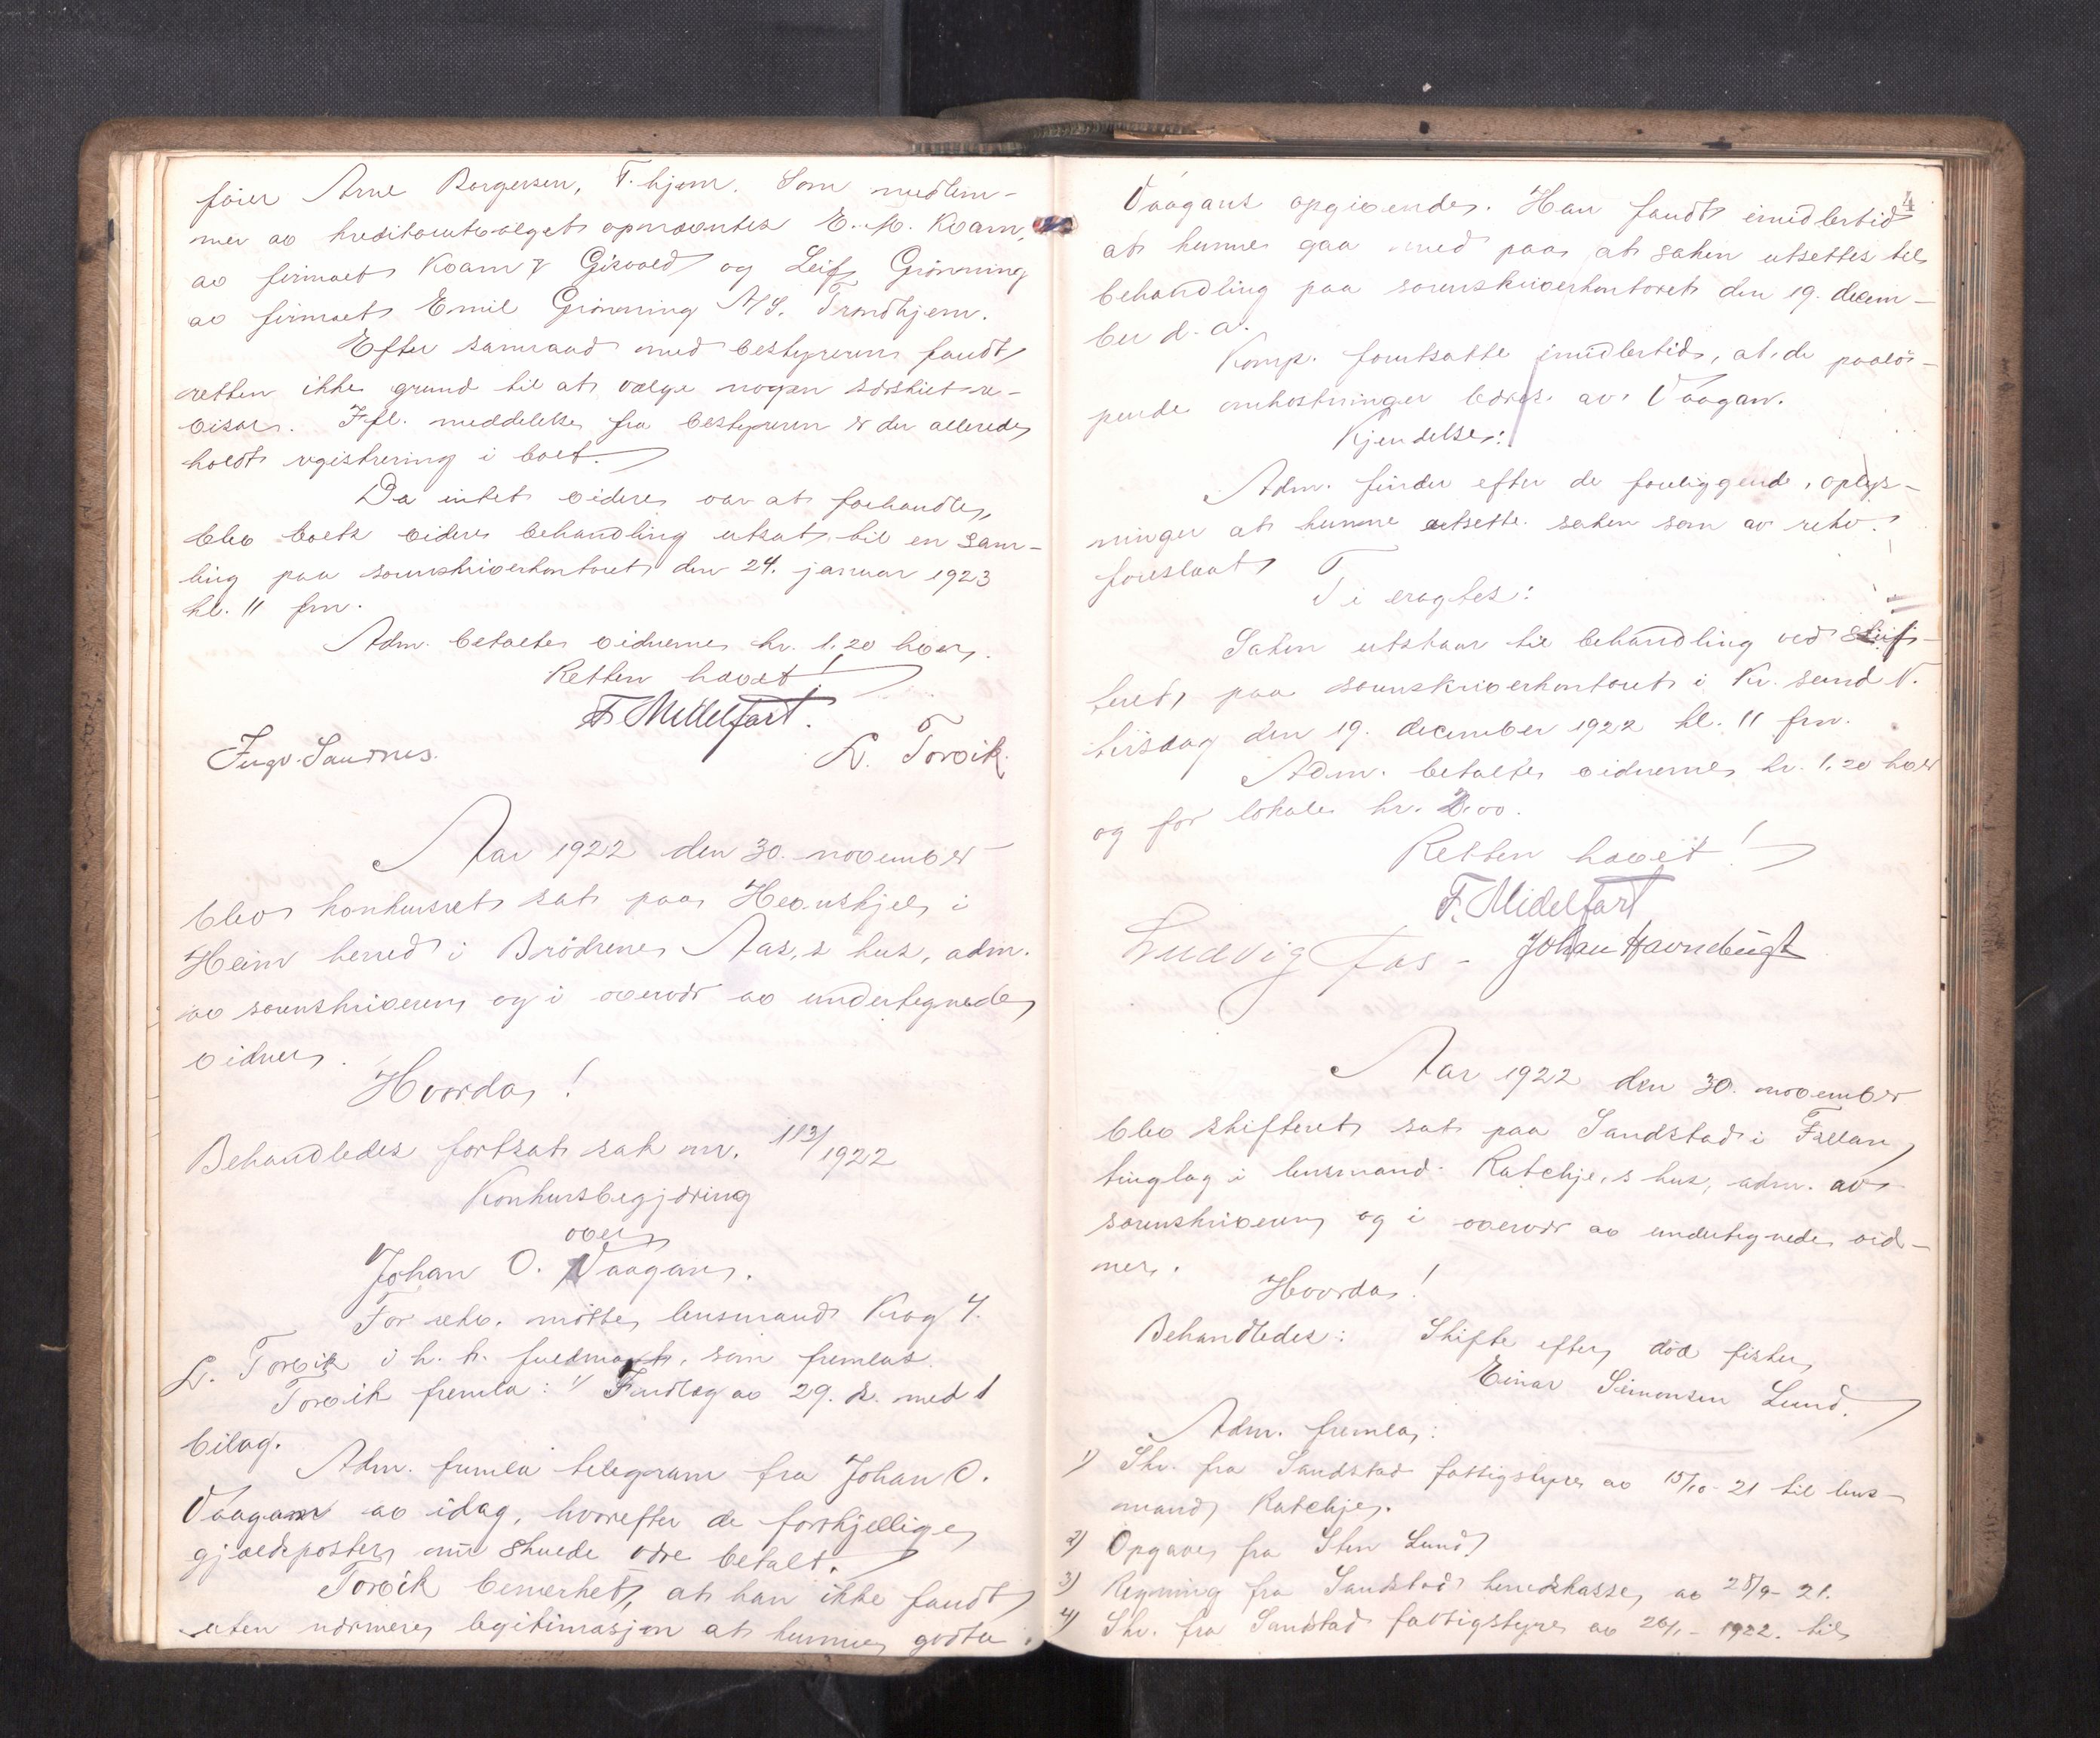 fører Arne Borgersen, T.hjem. Som medlem-
mer av kreditorutvalget opnævntes E. A. Kvam,
av firmaet Kvam & Gisvold og Leif Grønning
av firmaet Emil Grønning A/S. Trondhjem.
Efter samraad med bestyreren fandt
retten ikke grund til at vælge nogen særskilt re-
visor. Ifl. meddelelse fra bestyreren er der allerede
holdt registrering i boet.
Da intet videre var at forhandle,
blev boets videre behandling utsat til en sam-
ling paa sorenskriverkontoret den 24. januar 1923
kl. 11 fm.
Adm. betalte vidnerne kr. 1,20 hver.
Retten hævet!
F. Midelfart.
Ingv. Sandnes. L. Torvik.
Aar 1922 den 30. november
blev konkursret sat paa Hevnskjel i
Heim herred i Brødrene Aas,s hus, adm.
av sorenskriveren og i overvær av undertegnede
vidner.
Hvorda!
Behandledes fortsat sak nr. 113/1922
Konkursbegjæring
over
Johan O. Vaagan.
For rekv. møtte lensmand Krog f.
L. Torvik i h. t. fuldmagt, som fremlas.
Torvik fremla: 1/ Indlæg av 29. ds. med 1
bilag.
Adm. fremla telegram fra Johan O.
Vaagan av idag, hvorefter de forskjellige
gjældsposter nu skulde være betalt.
Torvik bemerket, at han ikke fandt
uten nærmere legitimasjon at kunne godta
4
Vaagans opgivende. Han fandt imidlertid
at kunne gaa med paa at saken utsettes til
behandling paa sorenskriverkontoret den 19. decem-
ber d. a.
Komp. forutsatte imidlertid, at de paalø-
pende omkostninger bæres av Vaagan.
Kjendelse:
Adm. finder efter de foreliggende oplys-
ninger at kunne utsette saken som av rekv.
foreslaat
Ti eragtes:
Saken utstaar til behandling ved skif-
teret paa sorenskriverkontoret i Kr.sund N.
tirsdag den 19. december 1922 kl. 11 fm.
Adm. betalte vidnerne kr. 1,20 hver
og for lokale kr. 2.00.
Retten hævet!
F. Midelfart
Ludvig Aas - Johan Havnebugt
Aar 1922 den 30. november
blev skifteret sat paa Sandstad i Fillan
tinglag i lensmand Ratchje,s hus, adm. av
sorenskriveren og i overvær av undertegnede vid-
ner.
Hvorda!
Behandledes: Skifte efter død fisker
Einar Simonsen Lund.
Adm. fremla:
1) Skr. fra Sandstad fattigstyre av 15/10-21 til lens-
mand Ratchje.
2) Opgave fra Sten Lund
3) Regning fra Sandstad herredskasse av 28/9-21.
4) Skr. fra Sandstad fattigstyre av 26/1-1922. til